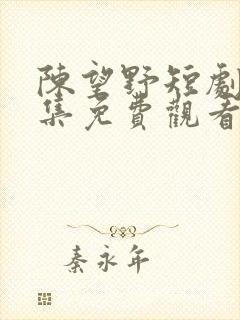 陳望野短劇
集免費觀看
秦永年